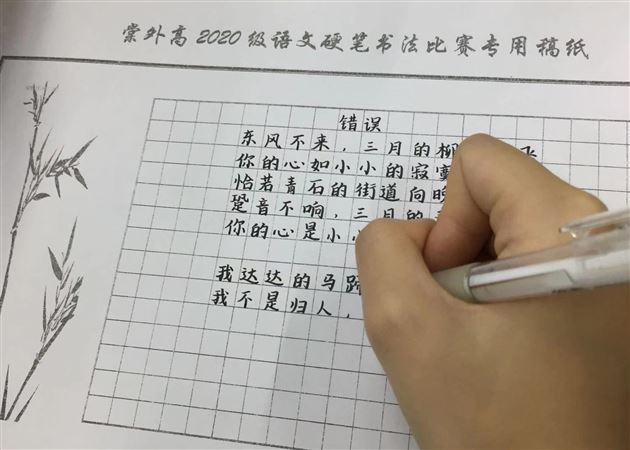 棠外高2020级语文硬笔书法比赛专用稿纸
错误
东风不来，三月的柳
你的心如小小的寂寞
恰若青石的街道向晚
跫音不响，三月的
你的心是小小
我达达的马蹄
我不是归人，